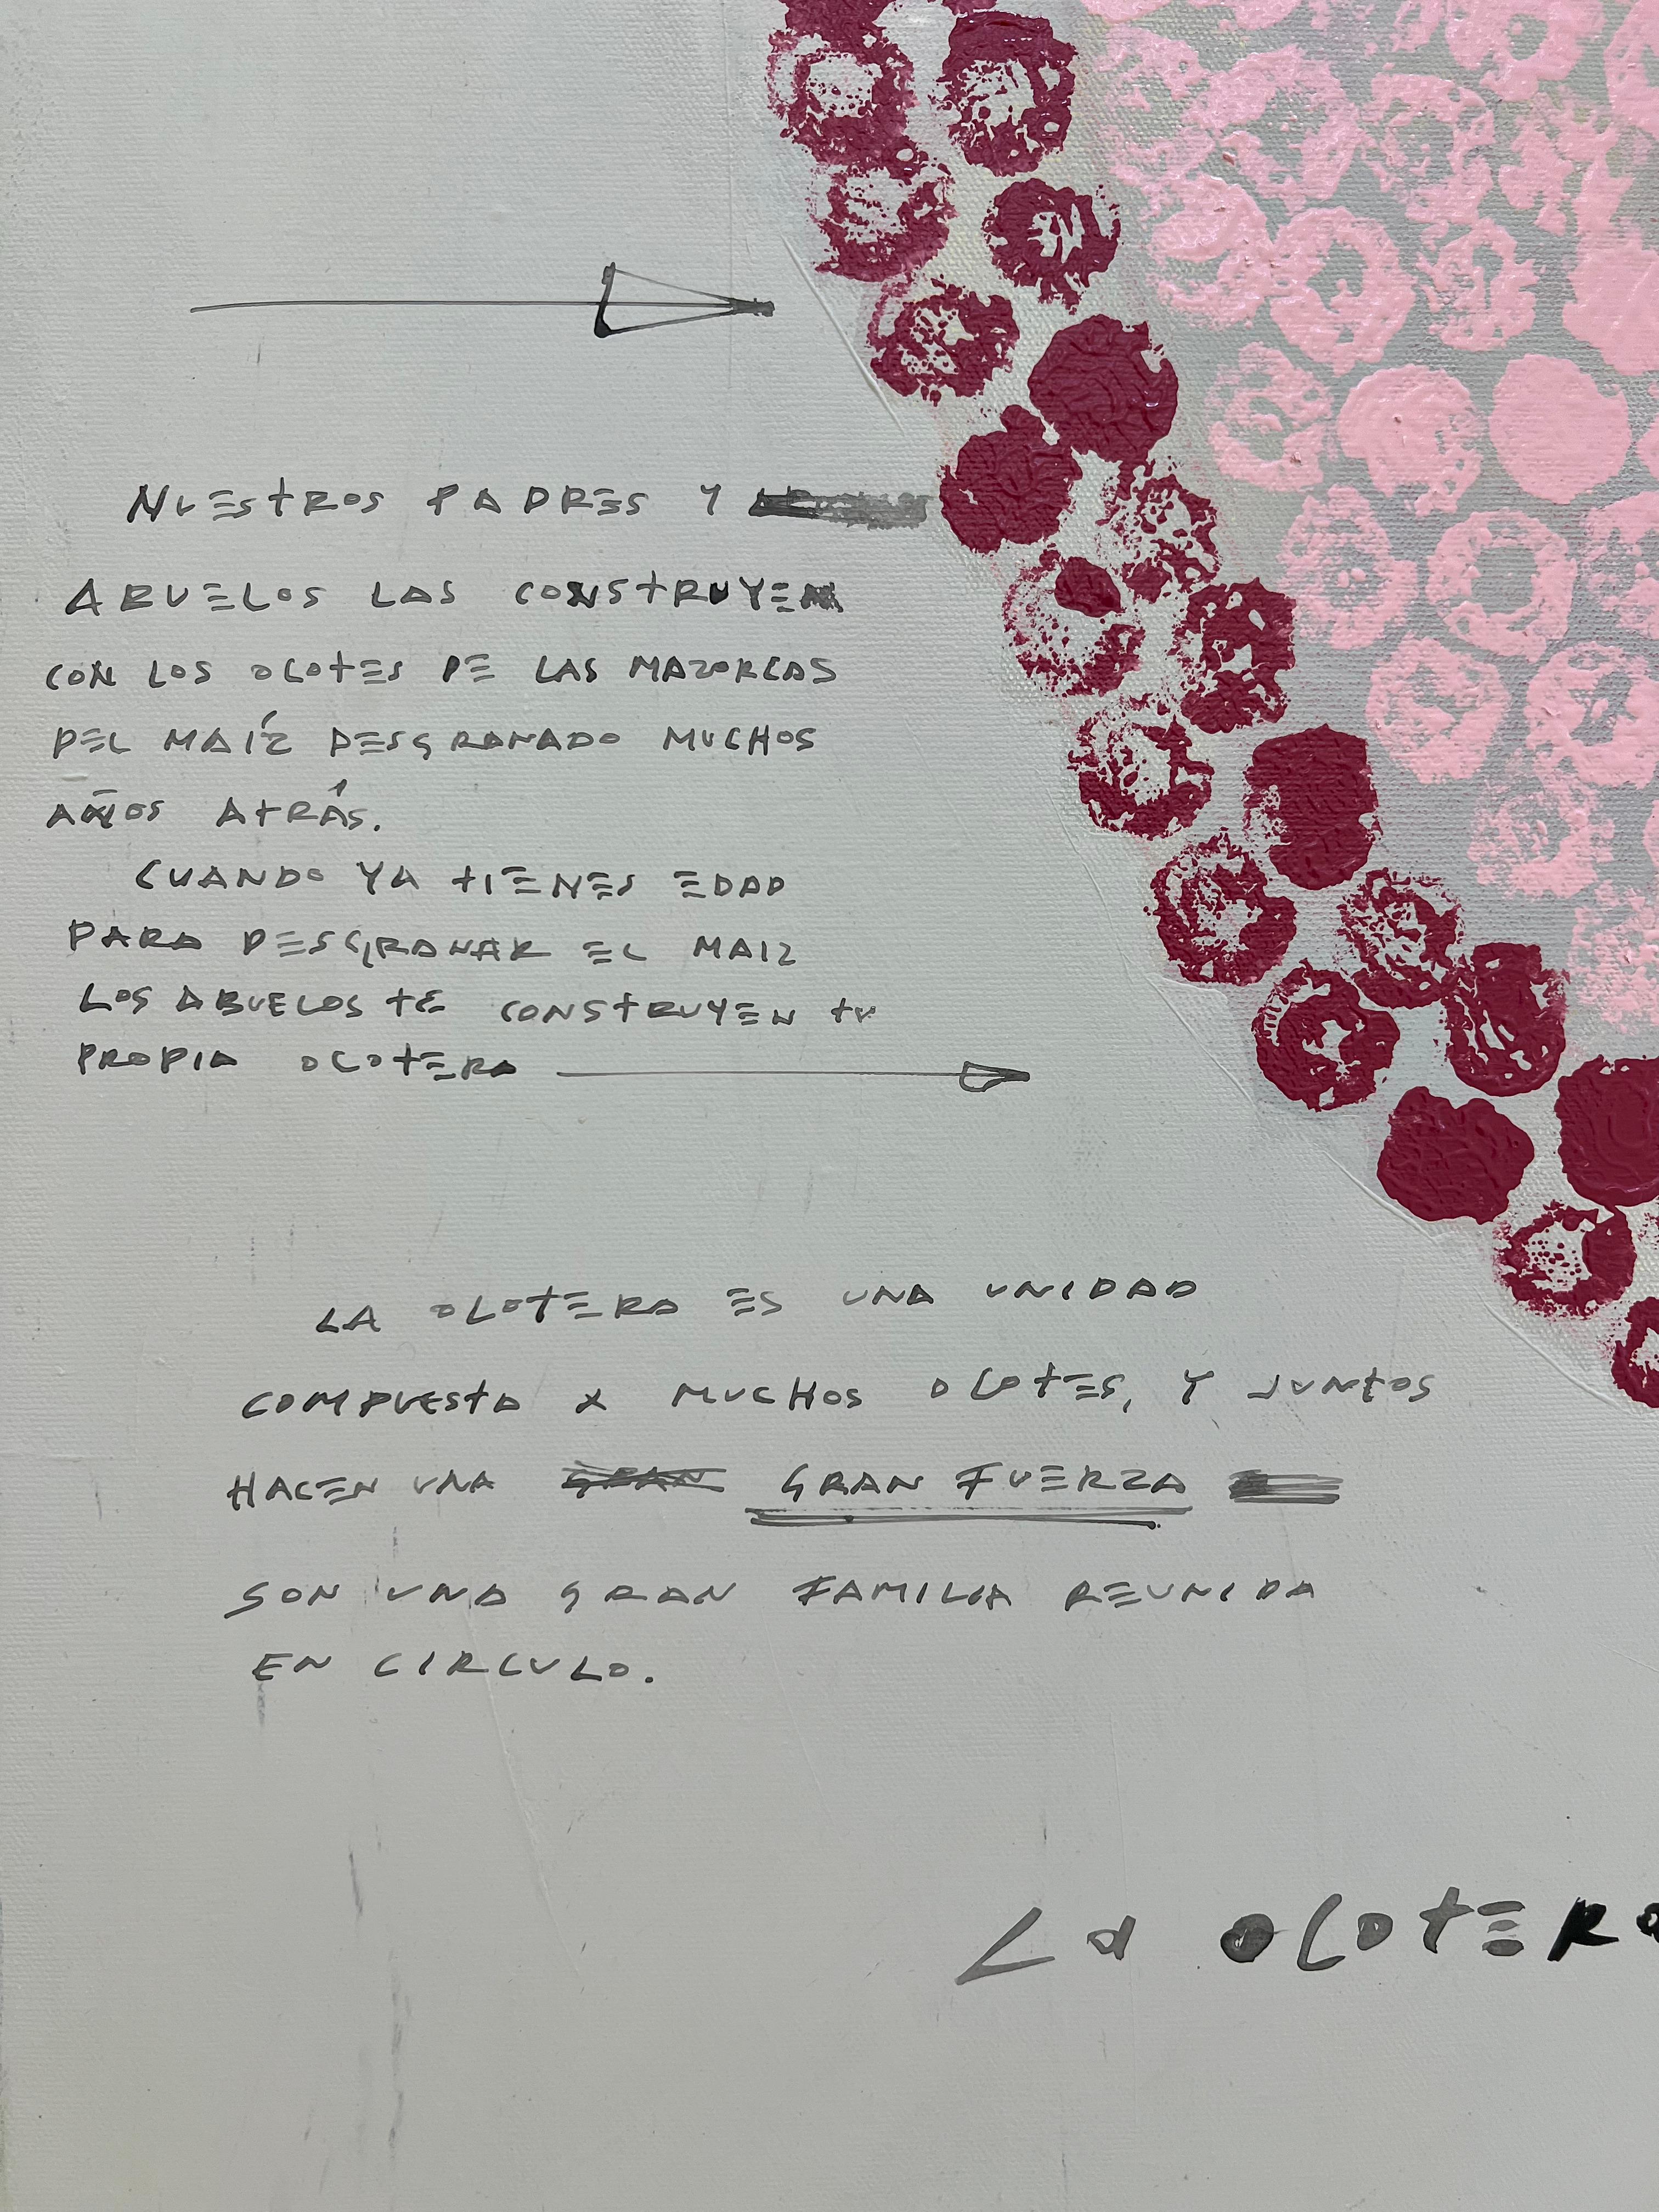 NUESTROS PADRES Y
ABUELOS LAS CONSTRUYEN
CON LOS OLOTES DE LAS MAZORCAS
DEL MAÍZ DESGRANADO MUCHOS
AÑOS ATRÁS.
CUANDO YA TIENES EDAD
PARA DESGRANAR EL MAIZ
LOS ABUELOS TE CONSTRUYEN TU
PROPIA OLOTERA
LA OLOTERA ES UNA UNIDAD
COMPUESTA X MUCHOS OLOTES, Y JUNTOS
HACEN UNA GRAN GRAN FUERZA
SON UNA GRAN FAMILIA REUNIDA
EN CIRCULO.
La OLOTERa